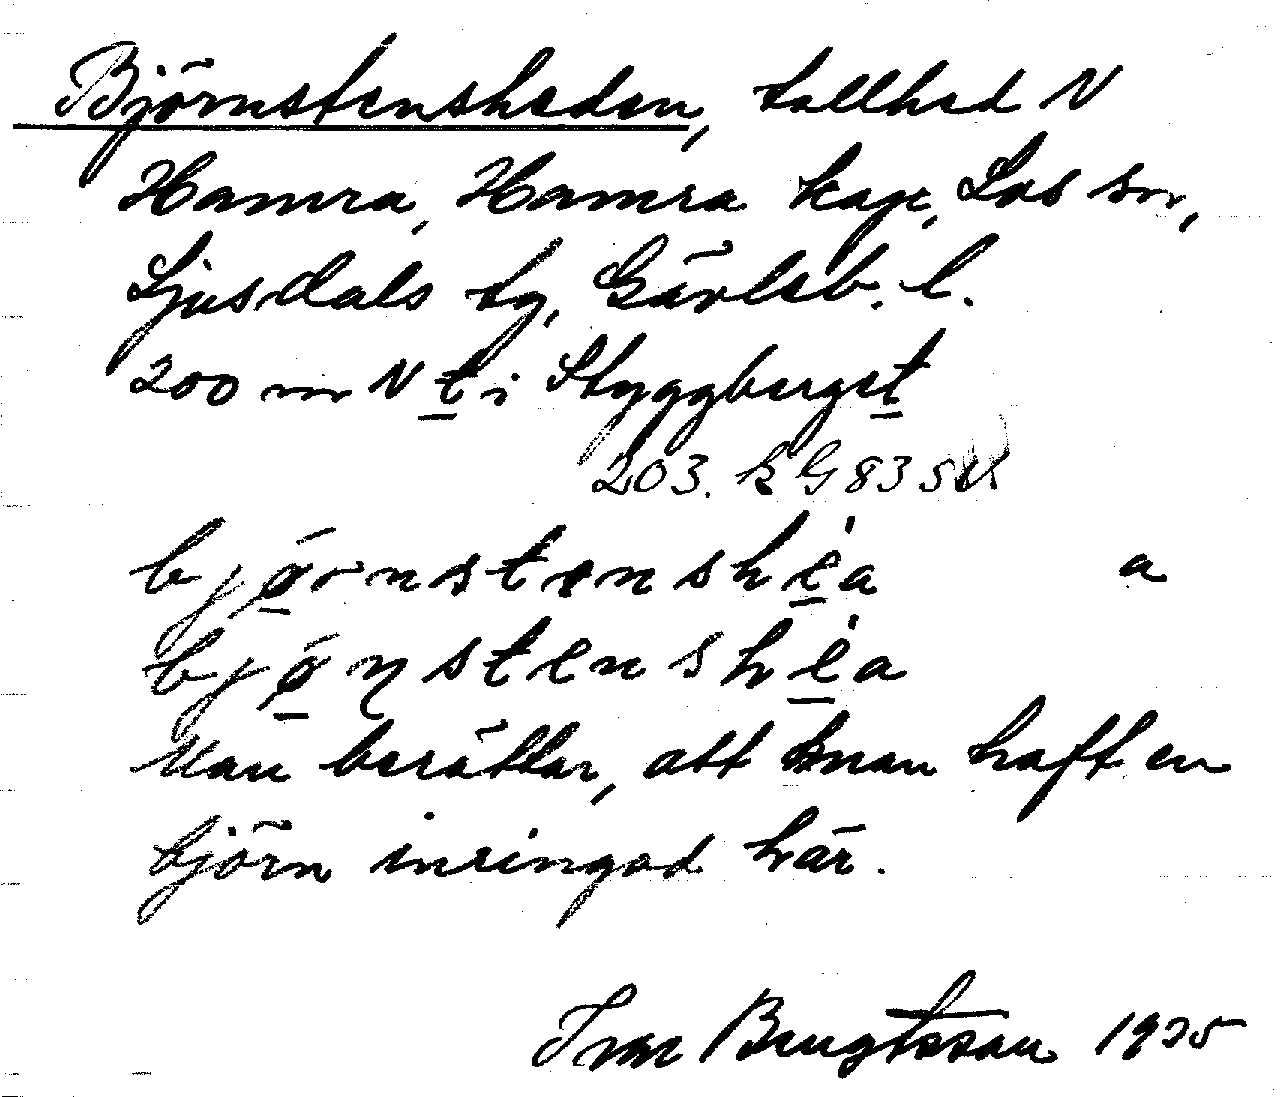 Björnstensheden, tallhed N
Hamra, Hamra kap, Los sn,
Ljusdals tg, Gävleb. l.
200 m N t i Styggberget
203. k G 83 SV
bjørnstenshėa a
bjønstenshėa
Man berättar, att man haft en
björn inringad här.
Ivar Bengtsson 1935